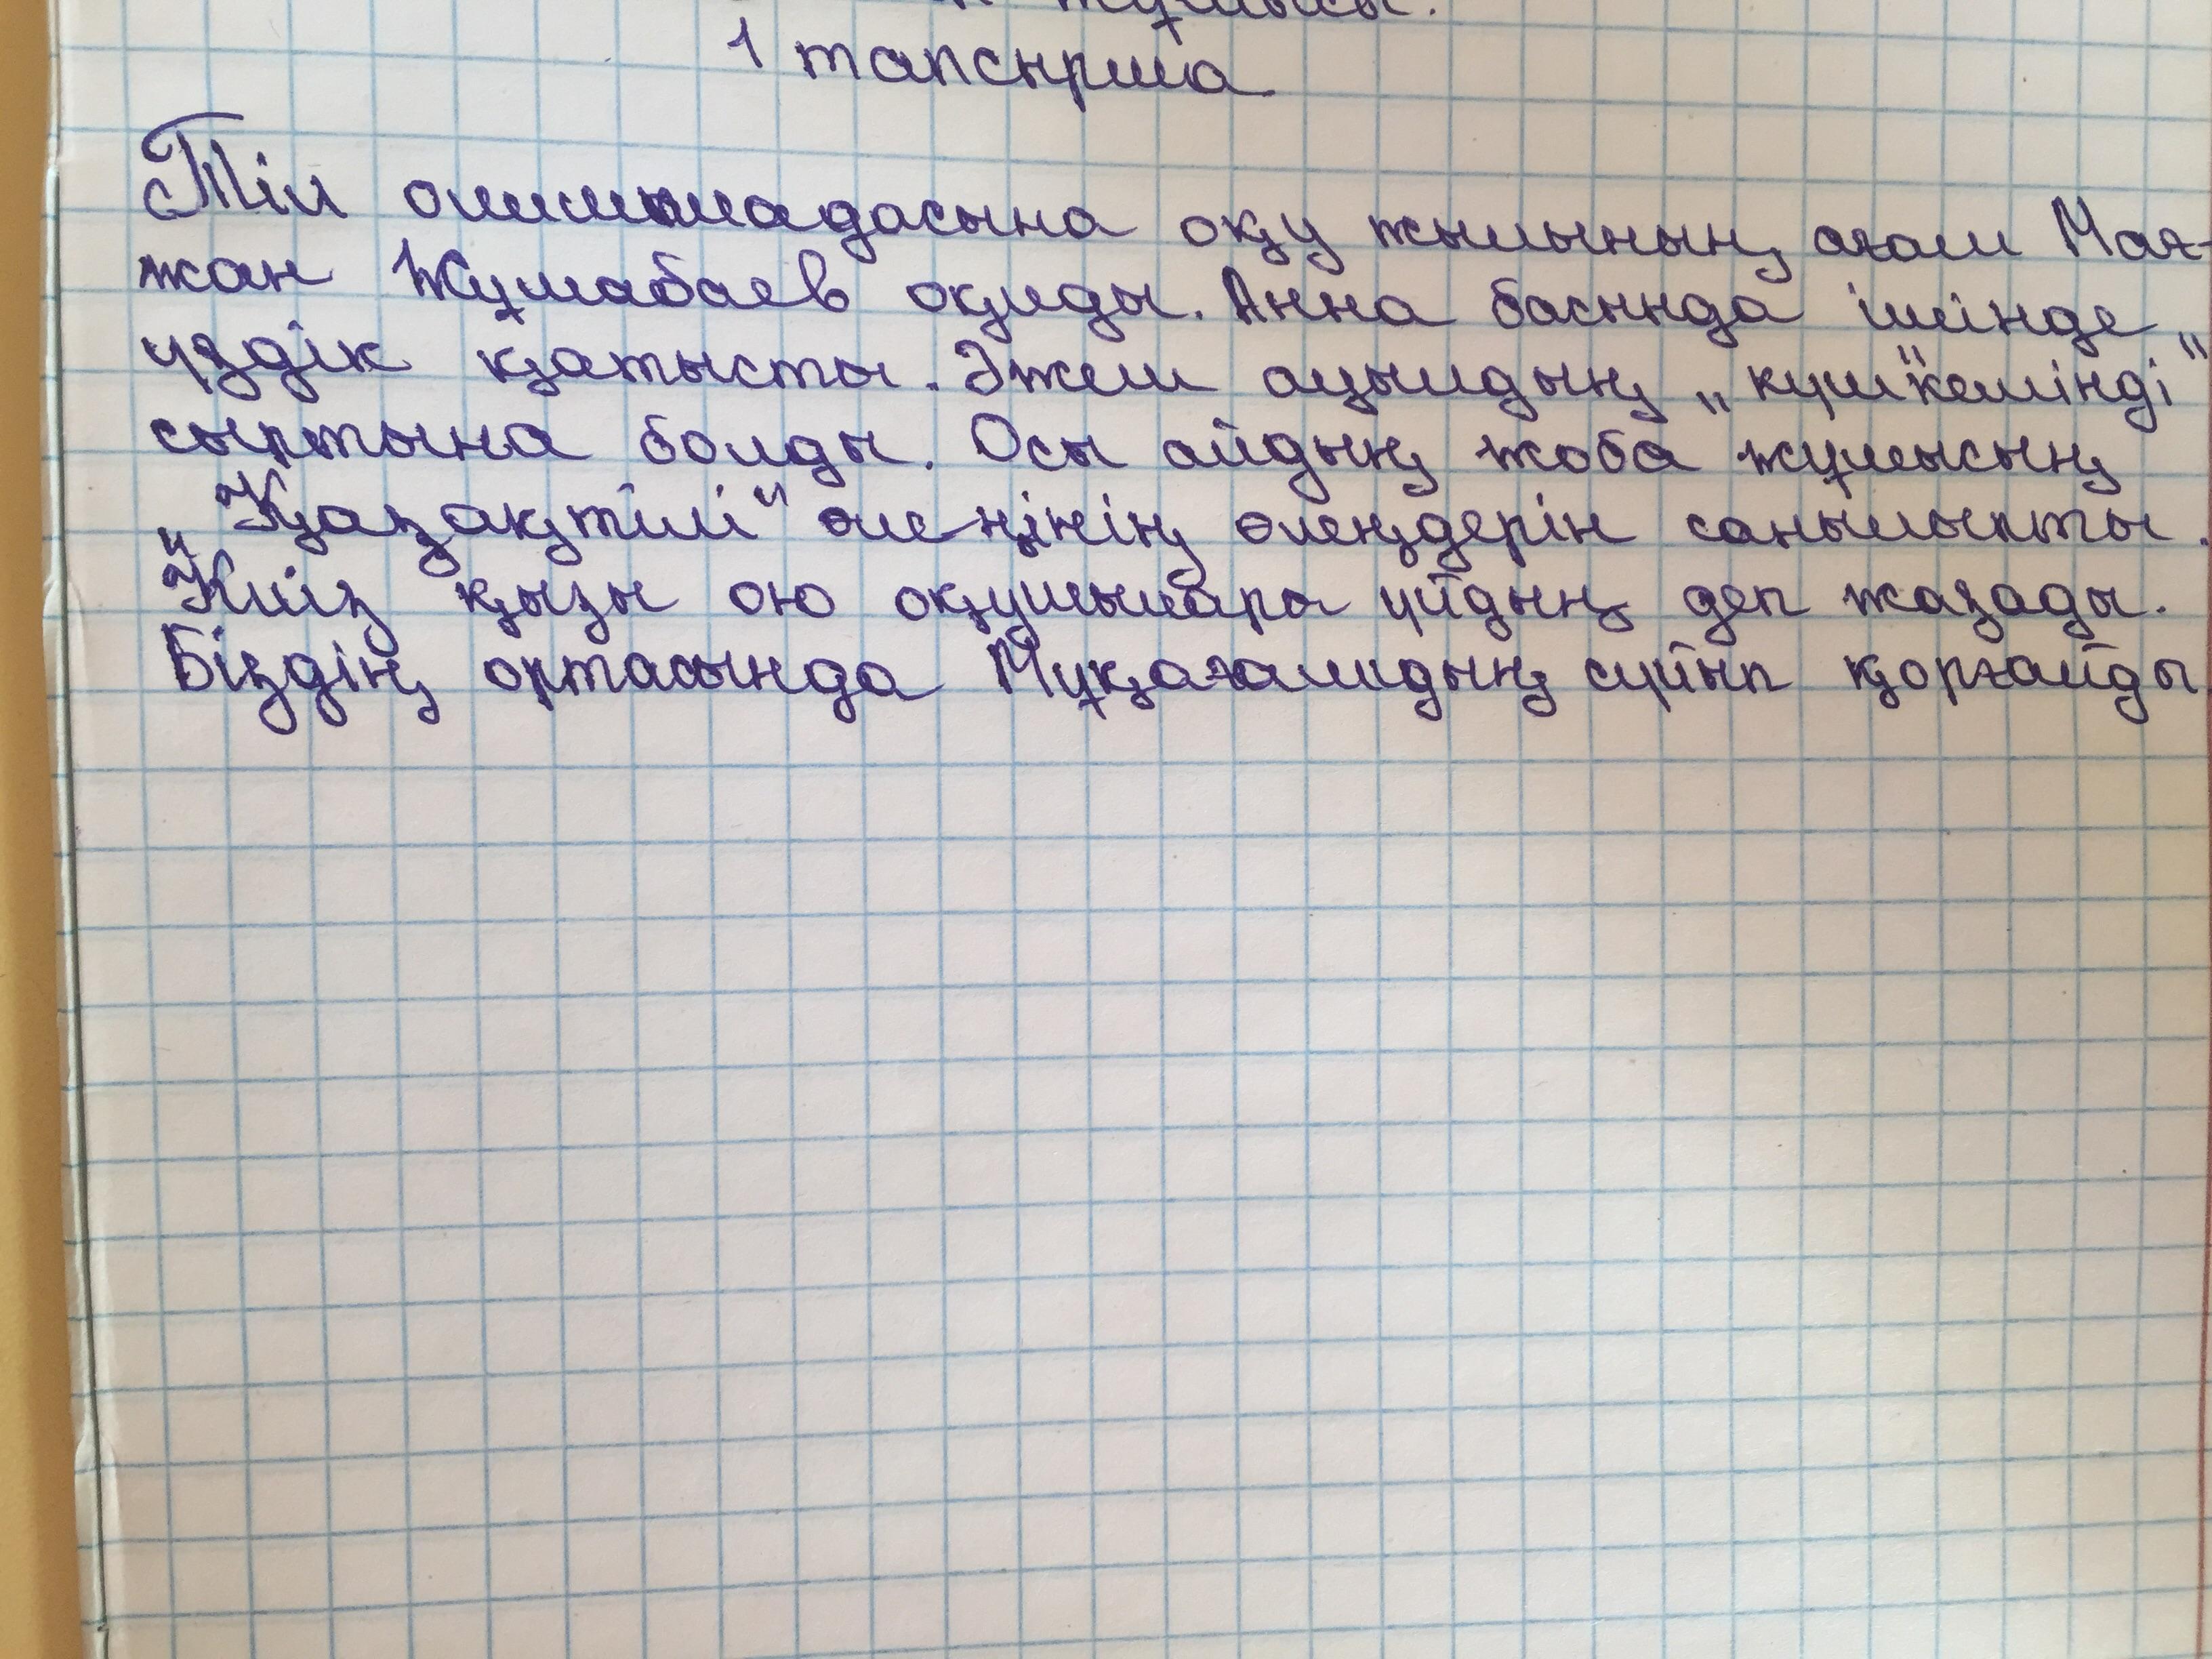 жұмысы.
1 тапсырма
Тіл олимпиадасына оқу жылының ағам Мағ-
жан Жұмабаев оқиды. Анна басында ішінде
үздік қатысты. Әжем ауылдың „күш"
сыртына болды. Осы айдың жоба жұмысың
„Қазақтілі" өлеңінің өлеңдерін
Киіз қызы ою оқушылары үйдың деп жазады.
Біздің ортасында Мұқағалидың сүйып қорғайды